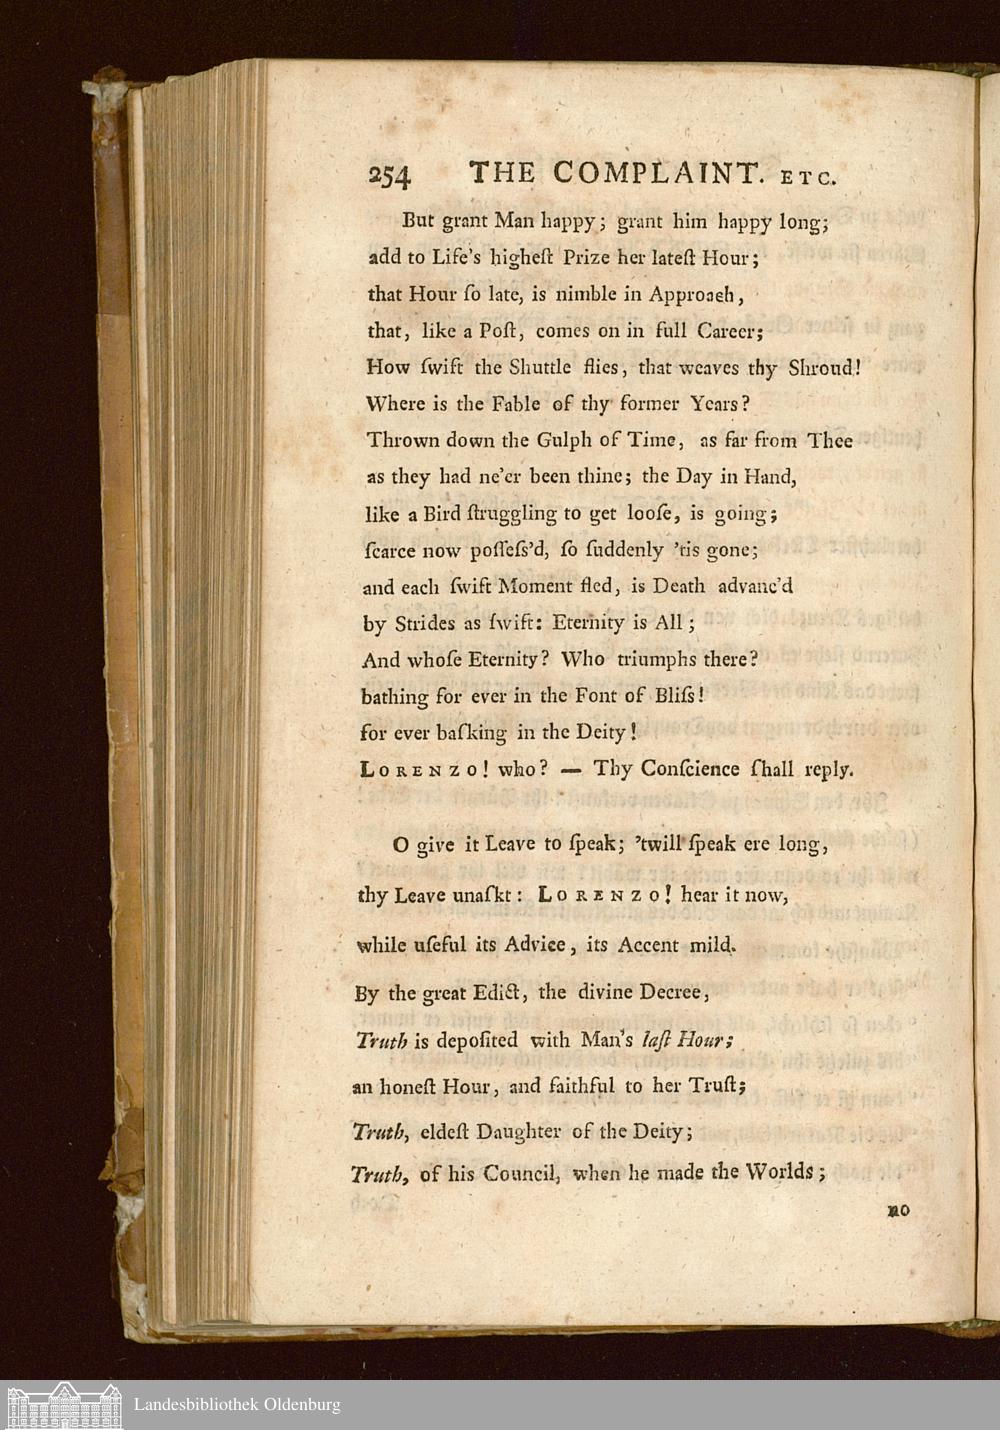 254 THE COMPLAINT. ETC.
But grant Man happy; grant him happy long;
add to Life's higheſt Prize her lateſt Hour;
that Hour ſo late, is nimble in Approach,
that, like a Poſt, comes on in full Career;
How ſwift the Shuttle flies, that weaves thy Shroud!
Where is the Fable of thy former Years?
Thrown down the Gulph of Time, as far from Thee
as they had ne'er been thine; the Day in Hand,
like a Bird ſtruggling to get looſe, is going;
ſcarce now poſſeſs'd, ſo ſuddenly 'tis gone;
and each ſwift Moment fled, is Death advanc'd
by Strides as ſwift: Eternity is All;
And whoſe Eternity? Who triumphs there?
bathing for ever in the Font of Bliſs!
for ever baſking in the Deity!
LORENZO! who? — Thy Conſcience ſhall reply.
O give it Leave to ſpeak; 'twill ſpeak ere long,
thy Leave unaſkt: LORENZO! hear it now,
while uſeful its Advice, its Accent mild.
By the great Edict, the divine Decree,
Truth is depoſited with Man's laſt Hour;
an honeſt Hour, and faithful to her Truſt;
Truth, eldeſt Daughter of the Deity;
Truth, of his Council, when he made the Worlds;
no
Landesbibliothek Oldenburg